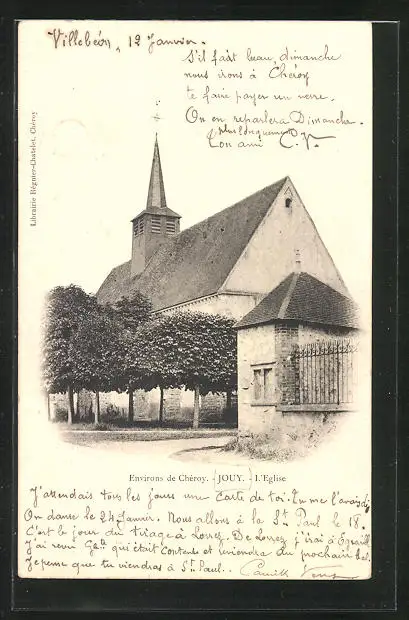 Villebéon, 12 Janvier.
S'il fait beau, dimanche
nous irons à Chéroy
te faire payer un verre.
On en reparlera Dimanche.
plus longuement
Ton ami C. V.
Librairie Régnier-Chatelet, Chéroy
Environs de Chéroy. - JOUY. - L'Eglise
J'attendais tous les jours une Carte de toi. Tu me l'avais dit
On danse le 24 Janvier. Nous allons à la St Paul le 18.
C'est le jour du tirage à Lorrez. De Lorrez j'irai à
J'ai revu qui était Contente et viendra au prochain bal.
Je pense que tu viendras à St Paul. Camille